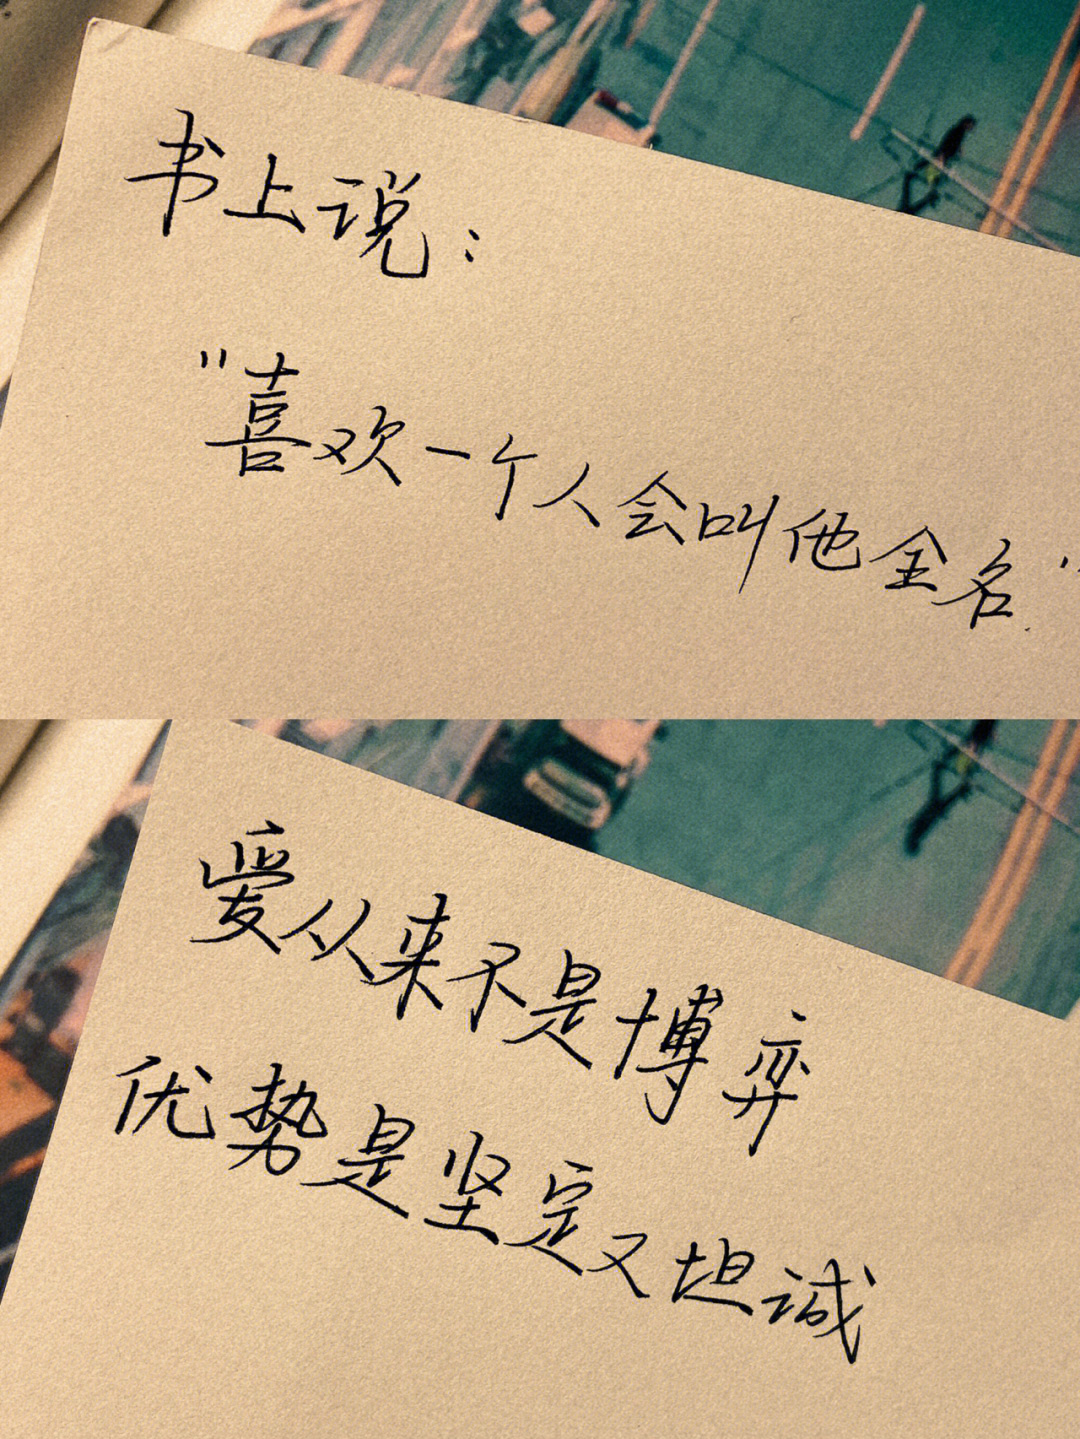 书上说：
"喜欢一个人会叫他全名"
爱从来不是博弈
优势是坚定又坦诚